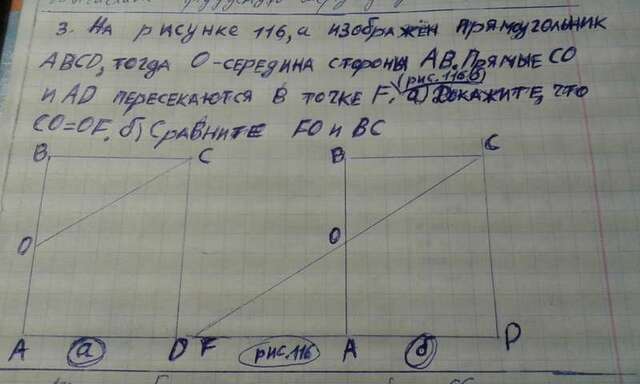 3. На рисунке 116, а изображён прямоугольник
ABCD, тогда O-середина стороны AB. Прямые CO
(рис. 116,б)
и AD пересекаются в точке F. а) Докажите, что
CO=OF, б) Сравните FO и BC
B C B C
O O
A а D F рис. 116 A б D